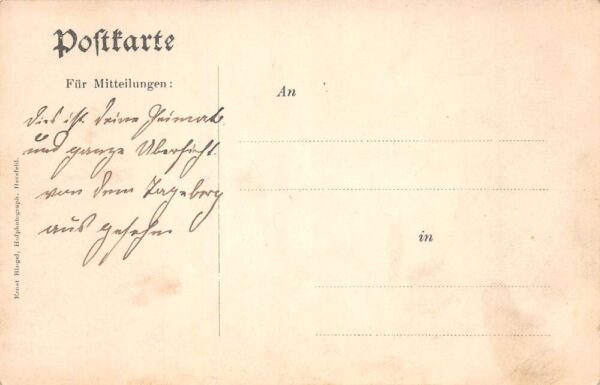 Postkarte
Für Mitteilungen:
An
Dies ist deine Heimat
und ganze Übersicht
von dem Tageberg
aus gesehen
in
Ernst Ringel, Hofphotograph, Hersfeld.